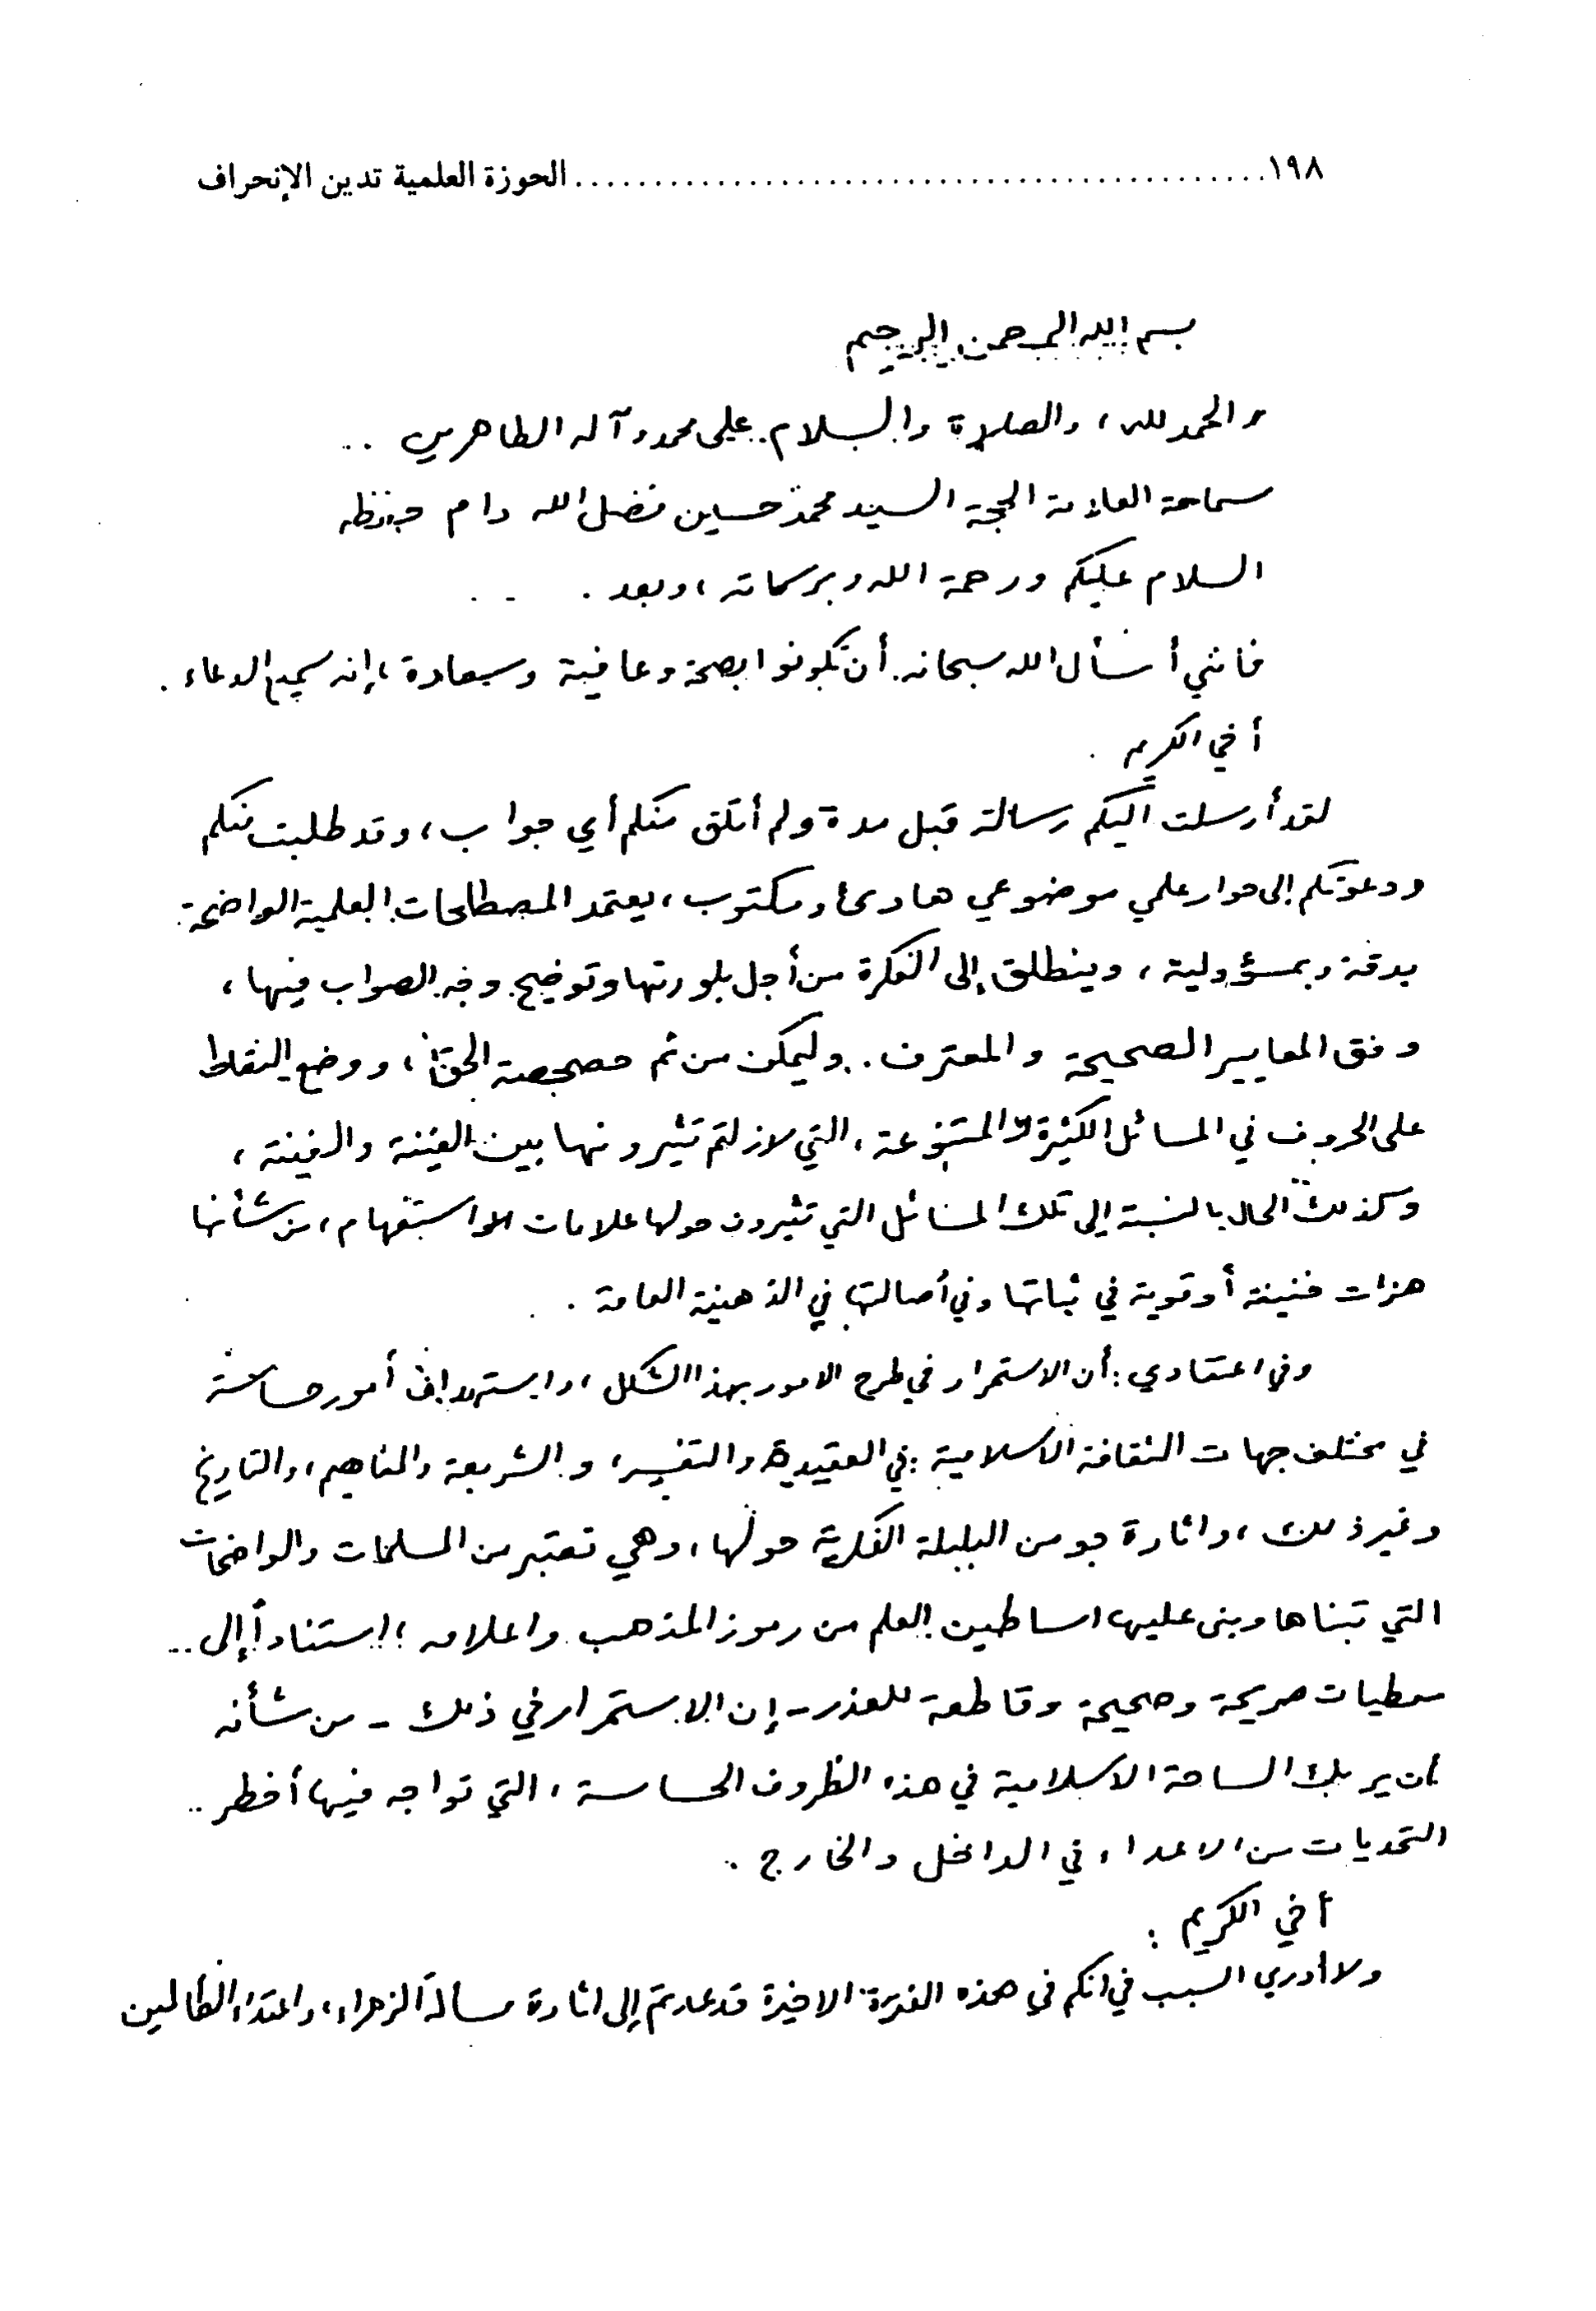 ١٩٨ ............................................ الحوزة العلمية تدين الإنحراف
بسم الله الرحمن الرحيم
والحمد لله، والصلاة والسلام على محمد وآله الطاهرين ..
سماحة العلامة الحجة السيد محمد حسين فضل الله دام حفظه
السلام عليكم ورحمة الله وبركاته، وبعد . . .
فانني أسأل الله سبحانه أن تكونوا بصحة وعافية وسعادة، إنه سميع الدعاء .
أخي الكريم .
لقد أرسلت اليكم رسالة قبل مدة ولم أتلق منكم أي جواب، وقد طلبت منكم
ودعوتكم إلى حوار علمي موضوعي هادئ ومكتوب، يعتمد المصطلحات العلمية الواضحة
بدقة وبمسؤولية، وينطلق إلى الفكرة من أجل بلورتها وتوضيح وجه الصواب فيها،
وفق المعايير الصحيحة والمعترف .. وليمكن من ثم حصحصة الحق، ووضع النقاط
على الحروف في المسائل الكثيرة والمتنوعة، التي لازلتم تثيرونها بين الفينة والفينة،
وكذلك الحال بالنسبة إلى تلك المسائل التي تثيرون حولها علامات استفهام، من شأنها
هزات خفيفة أو قوية في ثباتها وفي أصالتها في الذهنية العامة .
وفي اعتقادي : أن الاستمرار في طرح الامور بهذا الشكل، واستهداف أمور حساسة
في مختلف جهات الثقافة الاسلامية : في العقيدة والتفسير، والشريعة والمفاهيم، والتاريخ
وغير ذلك، واثارة جو من البلبلة الفكرية حولها، وهي تعتبر من المسلمات والواضحات
التي تبناها وبنى عليها اساطين العلم من رموز المذهب واعلامه ؛ استناداً إلى ..
معطيات صريحة وصحيحة وقاطعة للعذر - إن الاستمرار في ذلك - من شأنه
ان يربك الساحة الاسلامية في هذه الظروف الحساسة، التي تواجه فيها أخطر ..
التحديات من الاعداء في الداخل والخارج .
أخي الكريم :
ولا أدري السبب في انكم في هذه الفترة الاخيرة قد عدتم إلى اثارة مسألة الزهراء، واعتداء الظالمين